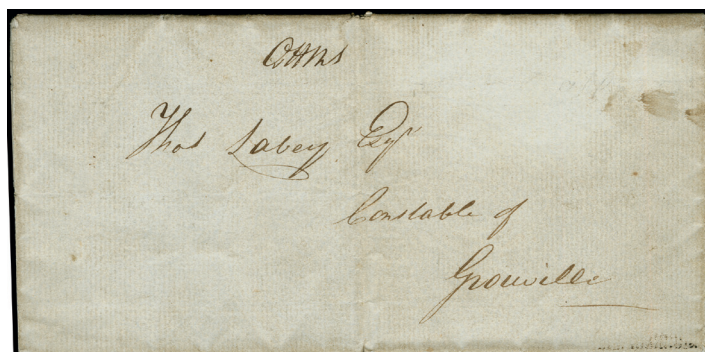 OHMS
Thos Labey Esqr
Constable of
Grouville